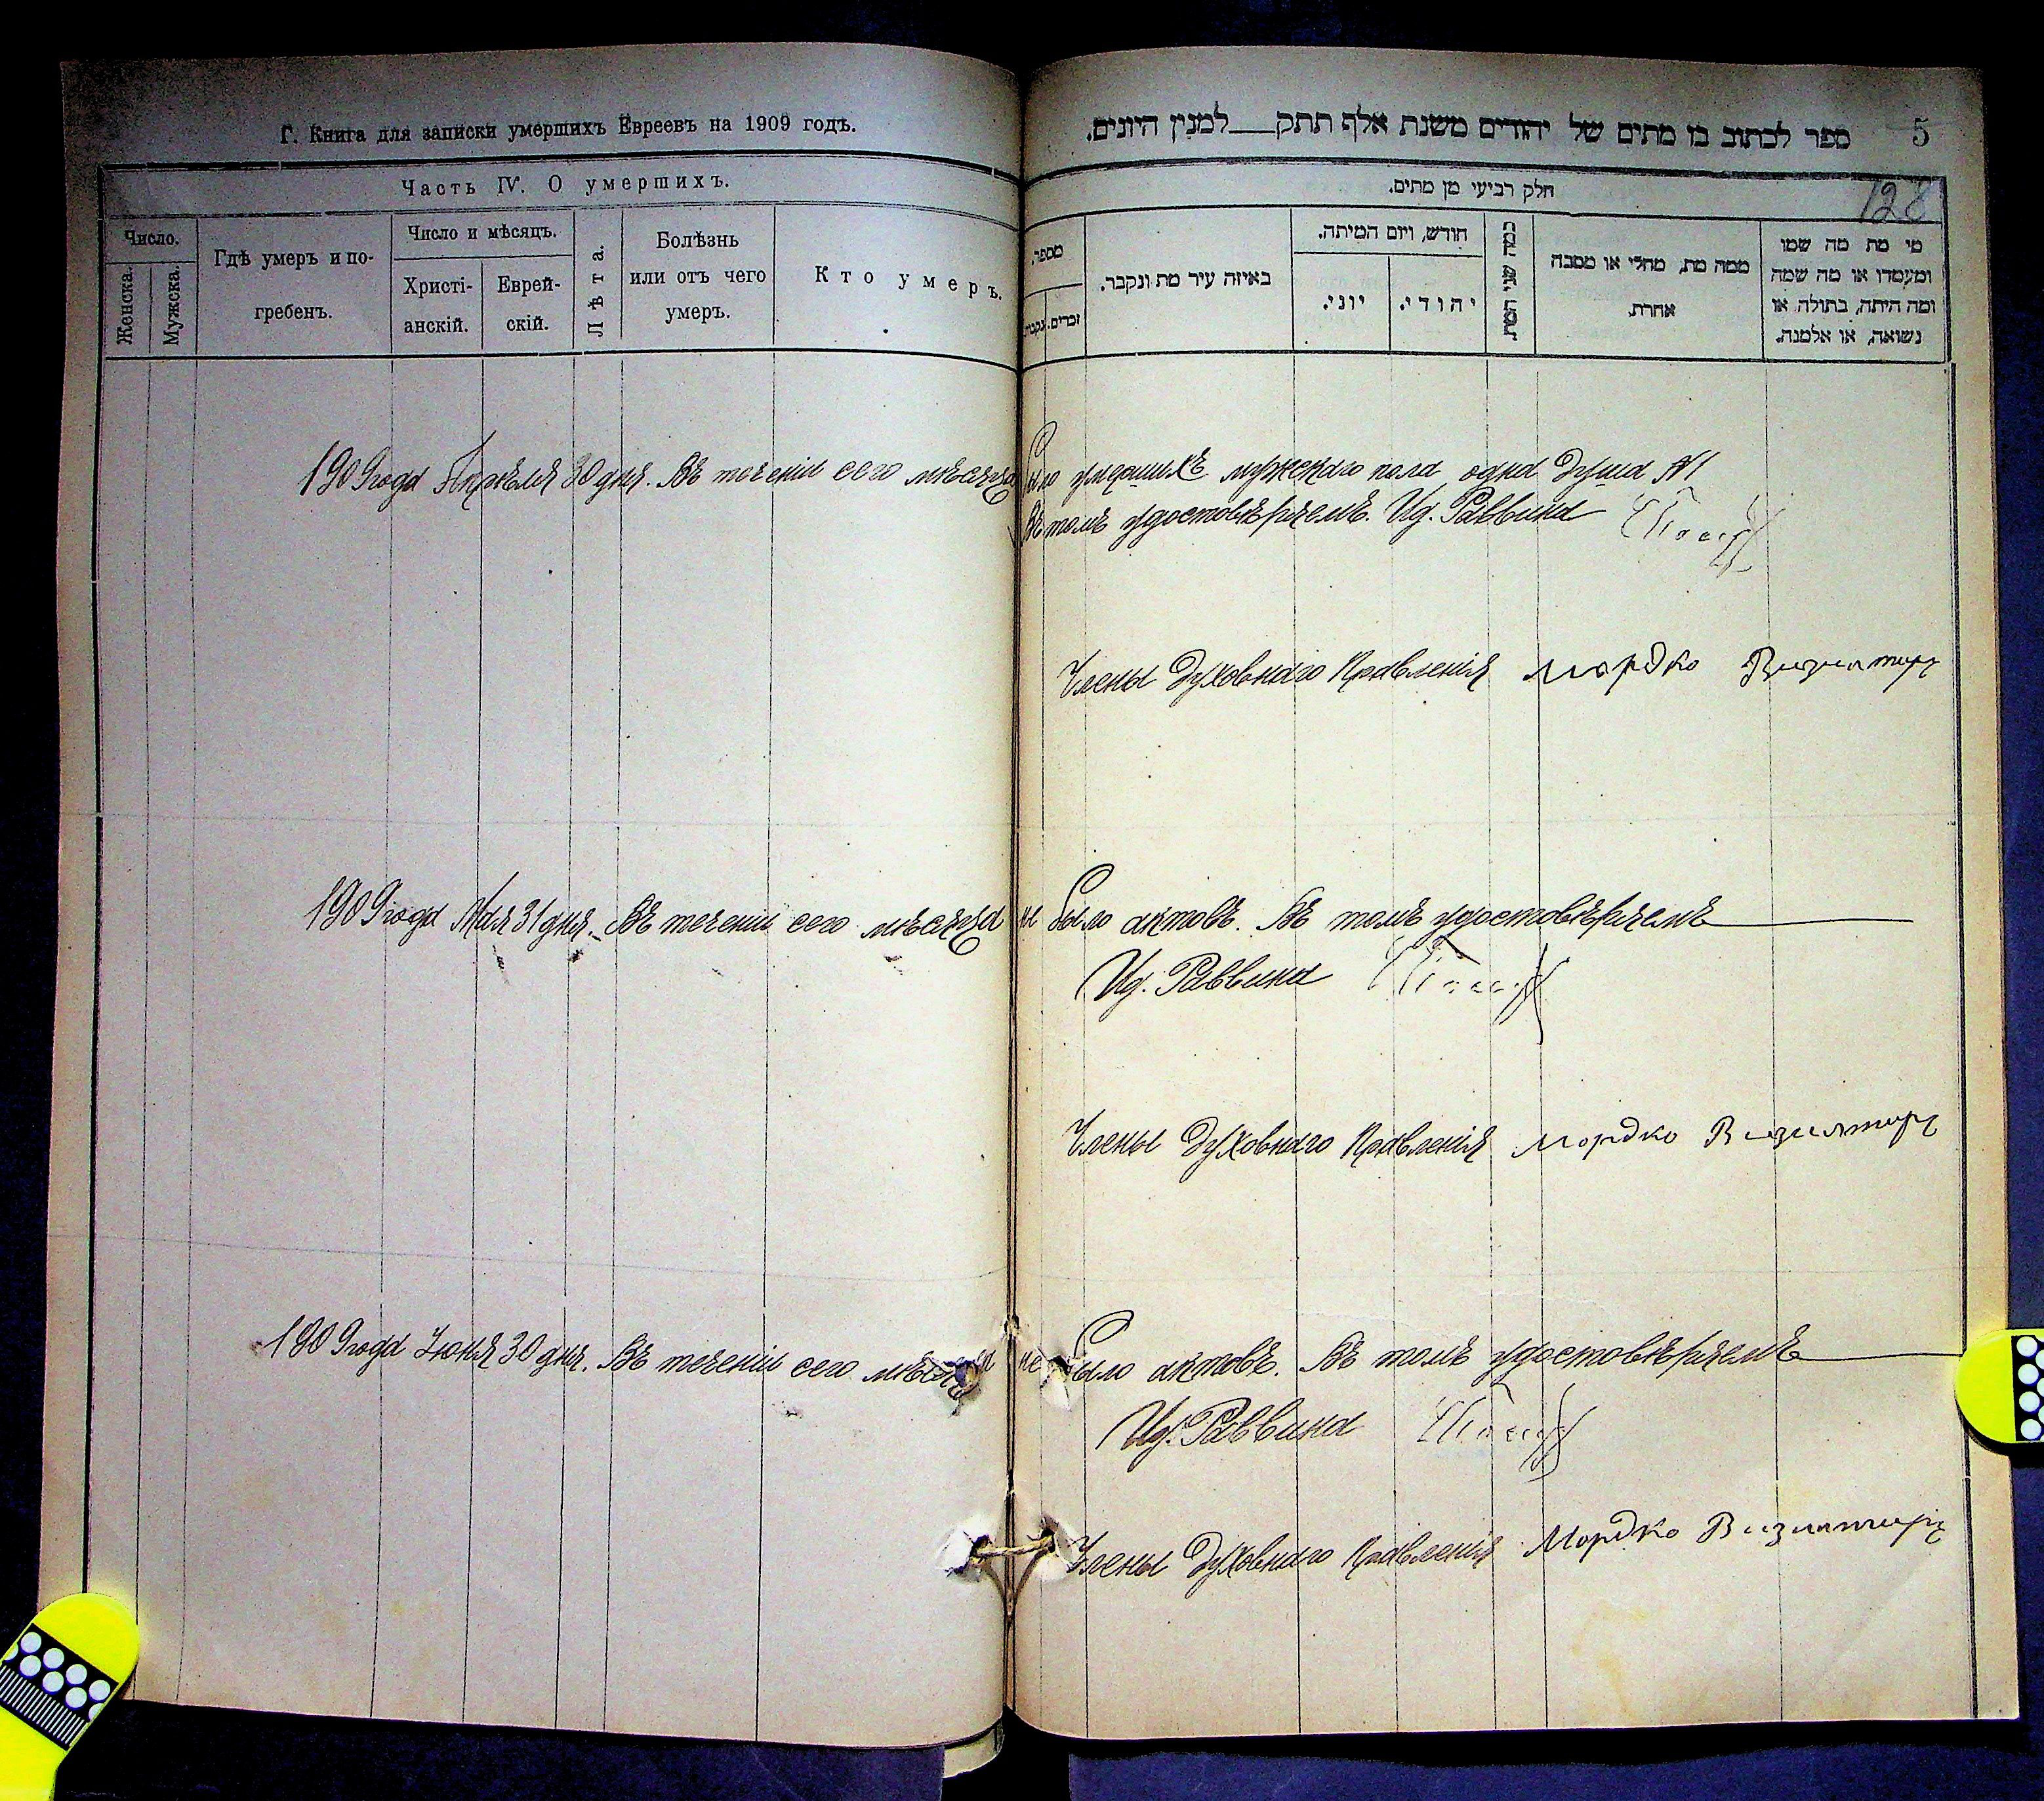 Г. Книга для записки умершихъ Евреевъ на 1909 годъ.
Часть IV. О умершихъ.
Число.
Женска.
Мужска.
Гдѣ умеръ и по-
гребенъ.
Число и мѣсяцъ.
Христі-
анскій.
Еврей-
скій.
Лѣта.
Болѣзнь
или отъ чего
умеръ.
Кто умеръ.
5
ספר לכתוב בו מתים של יהודים משנת אלף תתק___למנין היונים.
128
חלק רביעי מן מתים.
מספר.
זכרים.
נקבה.
באיזה עיר מת ונקבר.
חודש, ויום המיתה.
יוני.
יהודי.
כמה שני המת
ממה מת, מחלי או מסבה
אחרת.
מי מת מה שמו
ומעמדו או מה שמה
ומה היתה, בתולה או
נשואה, או אלמנה.
1909 года Апрѣля 30 дня. Въ теченіи сего мѣсяца было умершихъ мужскаго пола одна душа №1
Въ томъ удостовѣряемъ. Ид. Раввина
Члены Духовнаго Правленія Мордко Визитиръ
1909 года Мая 31 дня. Въ теченіи сего мѣсяца не было актовъ. Въ томъ удостовѣряемъ
Ид. Раввина
Члены Духовнаго Правленія Мордко
1909 года Іюня 30 дня. Въ теченіи сего мѣсяца не было актовъ. Въ томъ удостовѣряемъ
Ид. Раввина
Члены Духовнаго Правленія Мордко